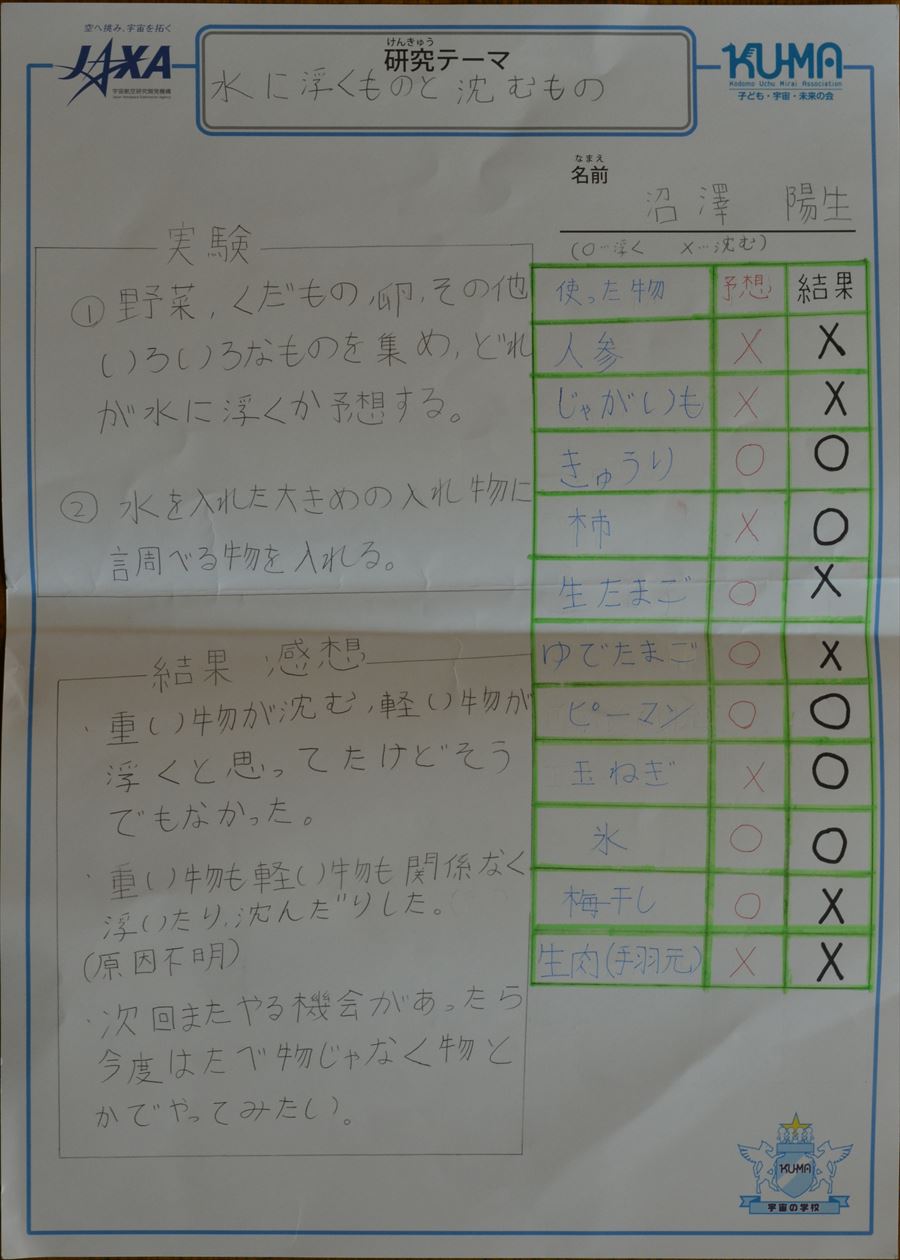 空へ挑み、宇宙を拓く
JAXA
宇宙航空研究開発機構
Japan Aerospace Exploration Agency
けんきゅう
研究テーマ
水に浮くものと沈むもの
KUMA
Kodomo Uchu Mirai Association
子ども・宇宙・未来の会
なまえ
名前
沼澤 陽生
実験
①野菜,くだもの,卵,その他
いろいろなものを集め,どれ
が水に浮くか予想する。
②水を入れた大きめの入れ物に
調べる物を入れる。
結果 感想
・重い物が沈む,軽い物が
浮くと思ってたけどそう
でもなかった。
・重い物も軽い物も関係なく
浮いたり,沈んだりした。
(原因不明)
・次回またやる機会があったら
今度はたべ物じゃなく物と
かでやってみたい。
(○…浮く ×…沈む)
使った物 予想 結果
人参 × ×
じゃがいも × ×
きゅうり ○ ○
柿 × ○
生たまご ○ ×
ゆでたまご ○ ×
ピーマン ○ ○
玉ねぎ × ○
氷 ○ ○
梅干し ○ ×
生肉(手羽元) × ×
KUMA
宇宙の学校